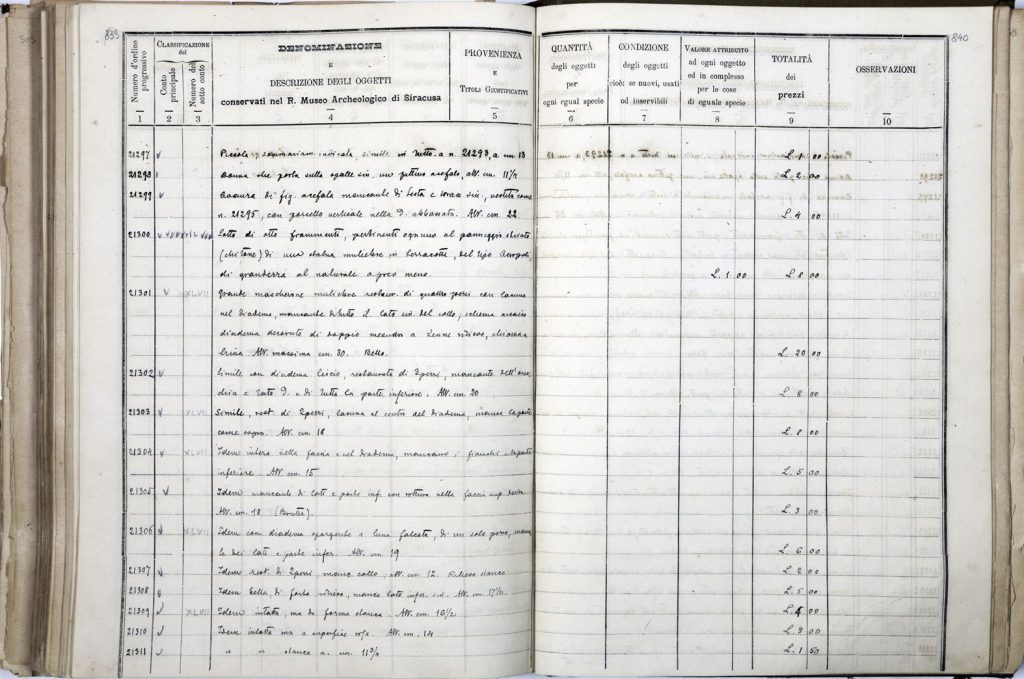 839
840
Numero d'ordine progressivo
CLASSIFICAZIONE del
Conto principale
Numero del sotto conto
DENOMINAZIONE
E
DESCRIZIONE DEGLI OGGETTI
conservati nel R. Museo Archeologico di Siracusa
PROVENIENZA
E
TITOLI GIUSTIFICATIVI
QUANTITÀ
degli oggetti
per
ogni egual specie
CONDIZIONE
degli oggetti
cioè: se nuovi, usati
od inservibili
VALORE ATTRIBUITO
ad ogni oggetto
ed in complesso
per le cose
di eguale specie
TOTALITÀ
dei
prezzi
OSSERVAZIONI
1 2 3 4 5 6 7 8 9 10
21297 V Piccola simile in tutto a n. 21293, a cm. 13 L. 1 00
21298 V Donna che porta sulla spalla sin. uno acefalo, alt. cm. 11 1/2 L. 2 00
21299 V di fig. acefala mancante di testa e sin, vestita come
n. 21295, con porcello verticale nella D. abbassata. Alt. cm. 22. L. 4 00
21300 V Lotto di otto frammenti, pertinenti ognuno al panneggio
(chitone) di una statua muliebre in terracotta, del tipo
di grandezza al naturale a poco meno. L. 1 00 L. 8 00
21301 V XLVII Grande mascherone muliebre restaur. di quattro pezzi con lacuna
nel diadema, mancante di tutto il lato sin. del collo; schema arcaico
diadema decorato di doppio meandro a rilievo,
Alt. massima cm. 30. Bello. L. 20 00
21302 V Simile con diadema liscio, restaurata di 2 pezzi, mancante dell'
e lato D. e di tutta la parte inferiore. Alt. cm. 20 L. 8 00
21303 V XLVII Simile, rest. di 2 pezzi, lacuna al centro del diadema, manca la parte
come sopra. Alt. cm. 18 L. 8 00
21304 V XLVII Idem intero nella faccia e nel diadema, mancano i fianchi e la parte
inferiore Alt. cm. 15 L. 5 00
21305 V Idem mancante di lati e parte inf. con rottura nella faccia sup. destra.
Alt. cm. 18 (Brutta). L. 3 00
21306 V XLVII Idem con diadema sporgente a luna falcata, di un solo pezzo,
dei lati e parte infer. Alt. cm 19 L. 6 00
21307 V Idem rest. di 2 pezzi, manca collo; alt. cm. 12. Rilievo stanco L. 2 00
21308 V Idem bella, di forte rilievo, manca lato infer. sin. Alt. cm. 17 1/2 L. 5 00
21309 V XLVII Idem intatta, ma di forma stanca. Alt. cm. 16 1/2 L. 4 00
21310 V Idem intatta ma a superficie rosa. Alt. cm. 14 L. 3 00
21311 V " " stanca a. cm. 11 3/4 L. 1 50